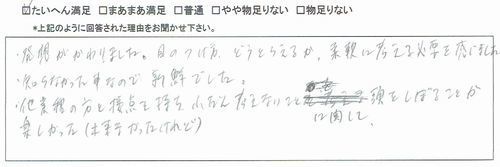 ☑たいへん満足 □まあまあ満足 □普通 □やや物足りない □物足りない
*上記のように回答された理由をお聞かせ下さい。
・発想がかわりました。目のつけ方、どうとらえるか、柔軟に考える必要を感じました
・知らなかった事なので新鮮でした。
・他業種の方と接点を持ち ふだん考えないことに関して、頭をしぼることが
楽しかった(は辛かったけれど)